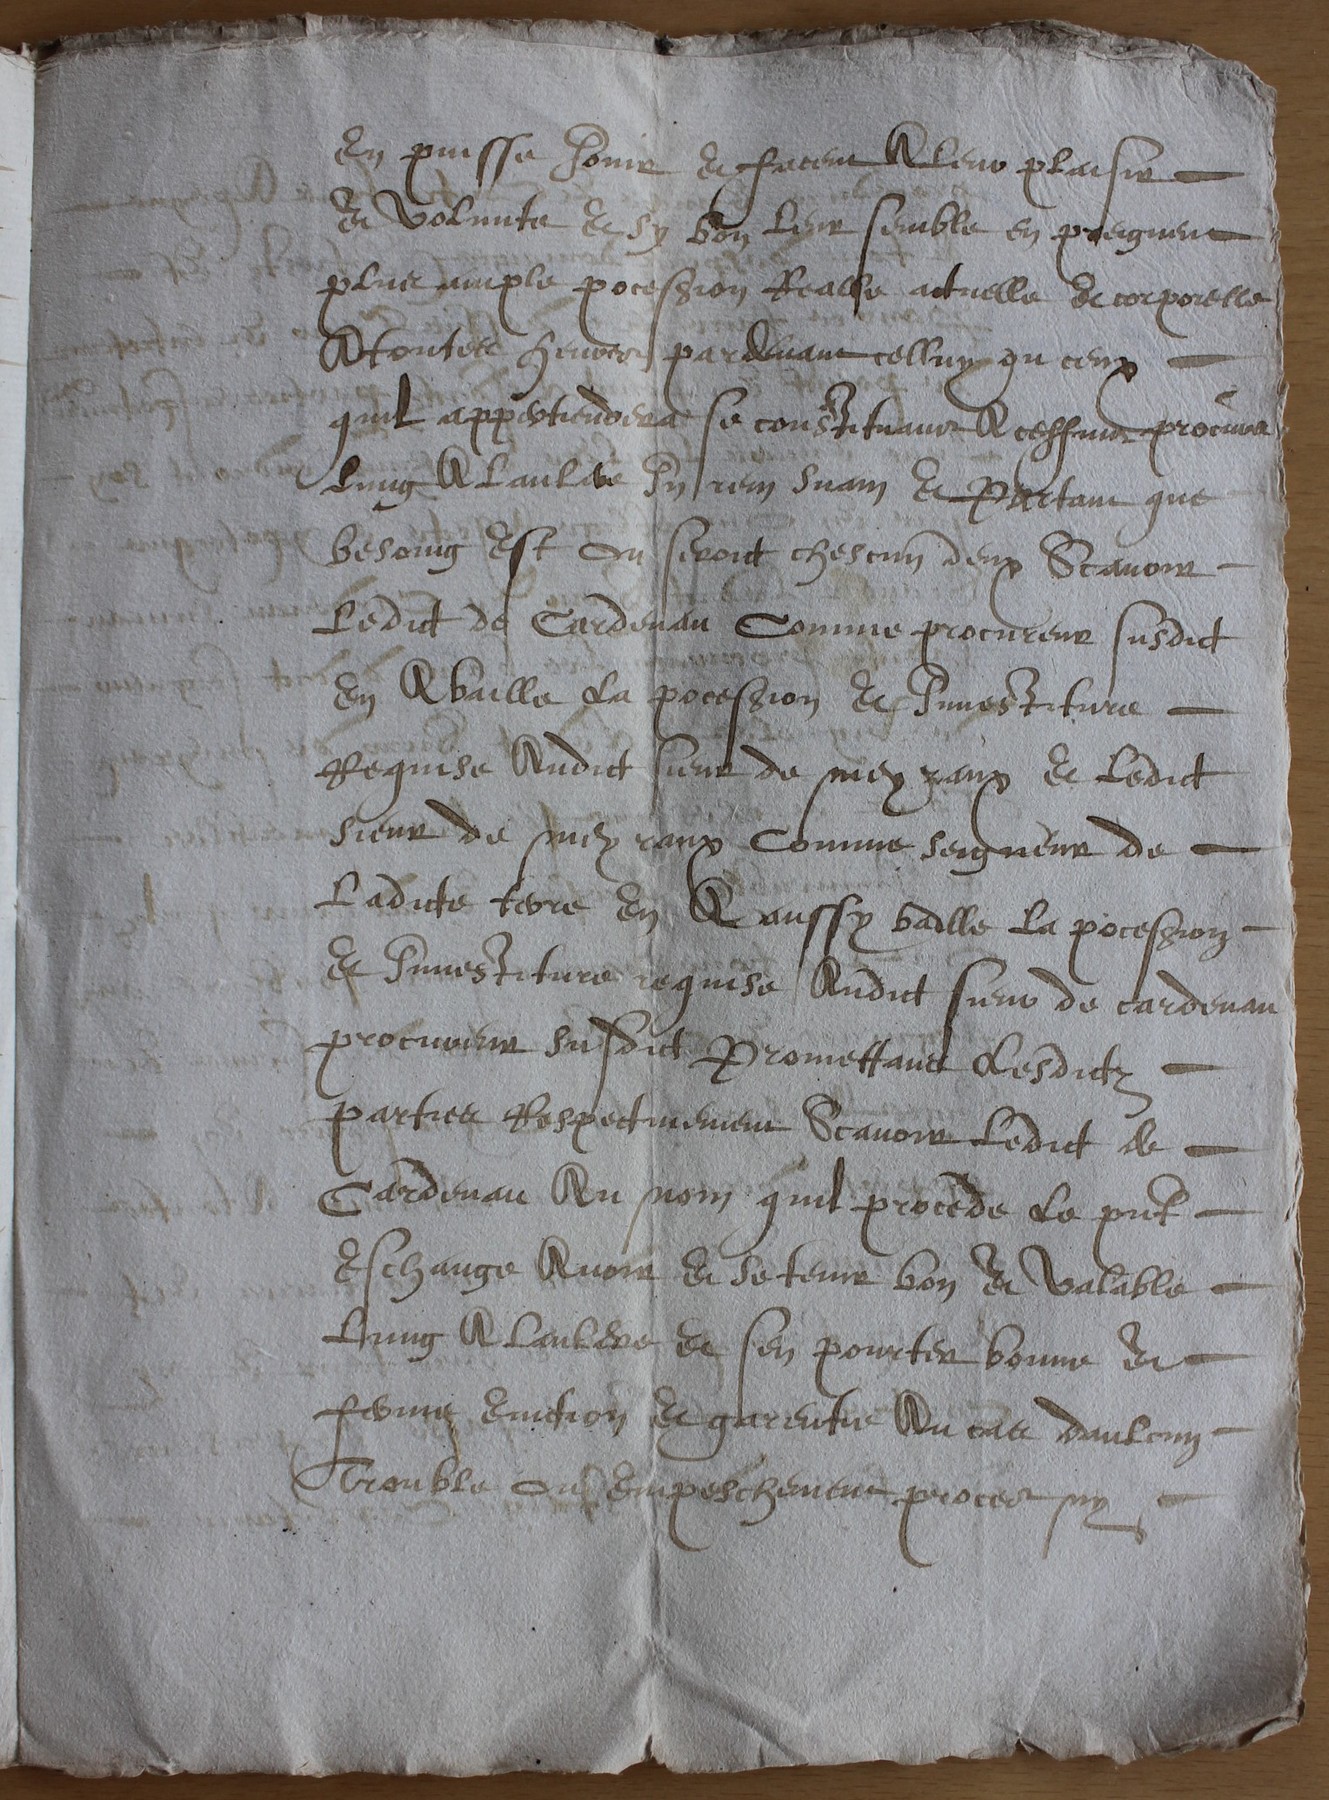 En puisse Jouir et facent A leur plaisir
et volunte et sy bon leur semble en preignent
plus ample pocession Realle actuelle et corporelle
A toutes heures pardevant celluy ou ceux
quil appertiendra se constituant A cest procure
lung A Laultre In rem suam et Partant que
besoing Est ou seroit chescun deux Scavoir
Ledict de Cardenau Comme procureur susdict
en A baille La pocession et Investiture
Requise Audict sieur de meyraux et Ledict
sieur de meyraux Comme seigneur de
Ladicte terre En A aussy balle La pocession
et Investiture requise Audict sieur de cardenau
procureur susdict Promettant Lesdictz
parties Respectivement Scavoir Ledict de
Cardenau Au nom quil procede Le pnt
Eschange Avoir et se tenir bon et valable
Lung A Laultre et sen pourter bonne et
ferme eviction et garentie Au cas daulcun
Trouble ou Empeschement proces ny